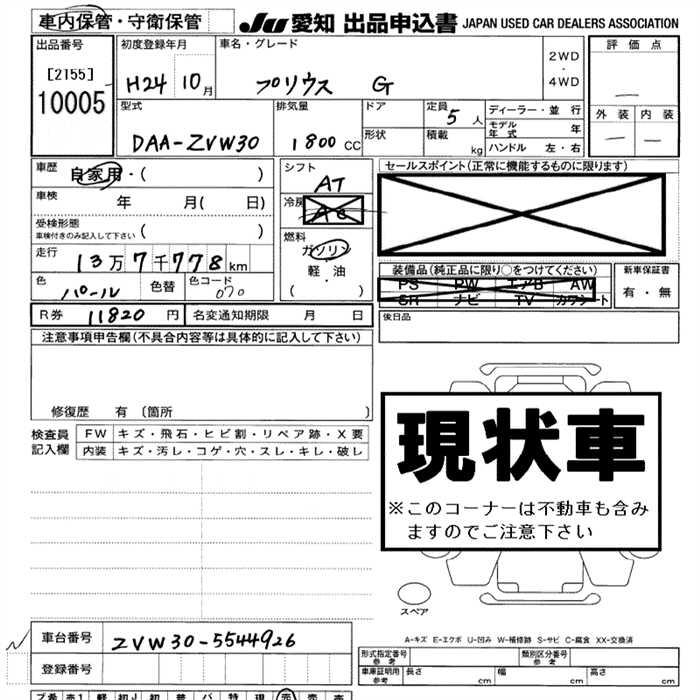 車内保管・守衛保管
JU 愛知 出品申込書 JAPAN USED CAR DEALERS ASSOCIATION
出品番号
[2155]
10005
初度登録年月
H24 10月
車名・グレード
プリウス G
2WD
・
4WD
評価点
—
外装 内装
— —
型式
DAA-ZVW30
排気量
1800 CC
ドア
形状
定員 5 人
積載 kg
ディーラー・並行
モデル年式 年
ハンドル 左・右
車歴 自家用・( )
車検 年 月( 日)
受検形態
車検付きのみ記入して下さい ( )
走行 13万7千778km
色 パール 色替 色コード 070
シフト
AT
冷房
AC
燃料
ガソリン
軽・油
( ・ )
セールスポイント(正常に機能するものに限ります)
装備品(純正品に限り○をつけてください)
PS PW エアB AW
SR ナビ TV カワシート
新車保証書
有・無
R券 11820 円 名変通知期限 月 日
後日品
注意事項申告欄(不具合内容等は具体的に記入して下さい)
修復歴 有〔箇所 〕
検査員記入欄
FW キズ・飛石・ヒビ割・リペア跡・X要
内装 キズ・汚レ・コゲ・穴・スレ・キレ・破レ
現状車
※このコーナーは不動車も含み
ますのでご注意下さい
スペア
A-キズ E-エクボ U-凹み W-補修跡 S-サビ C-腐食 XX-交換済
車台番号 ZVW30-5544926
登録番号
型式指定番号 参考
類別区分番号 参考
車庫証明用 参考 長さ cm 幅 cm 高さ cm